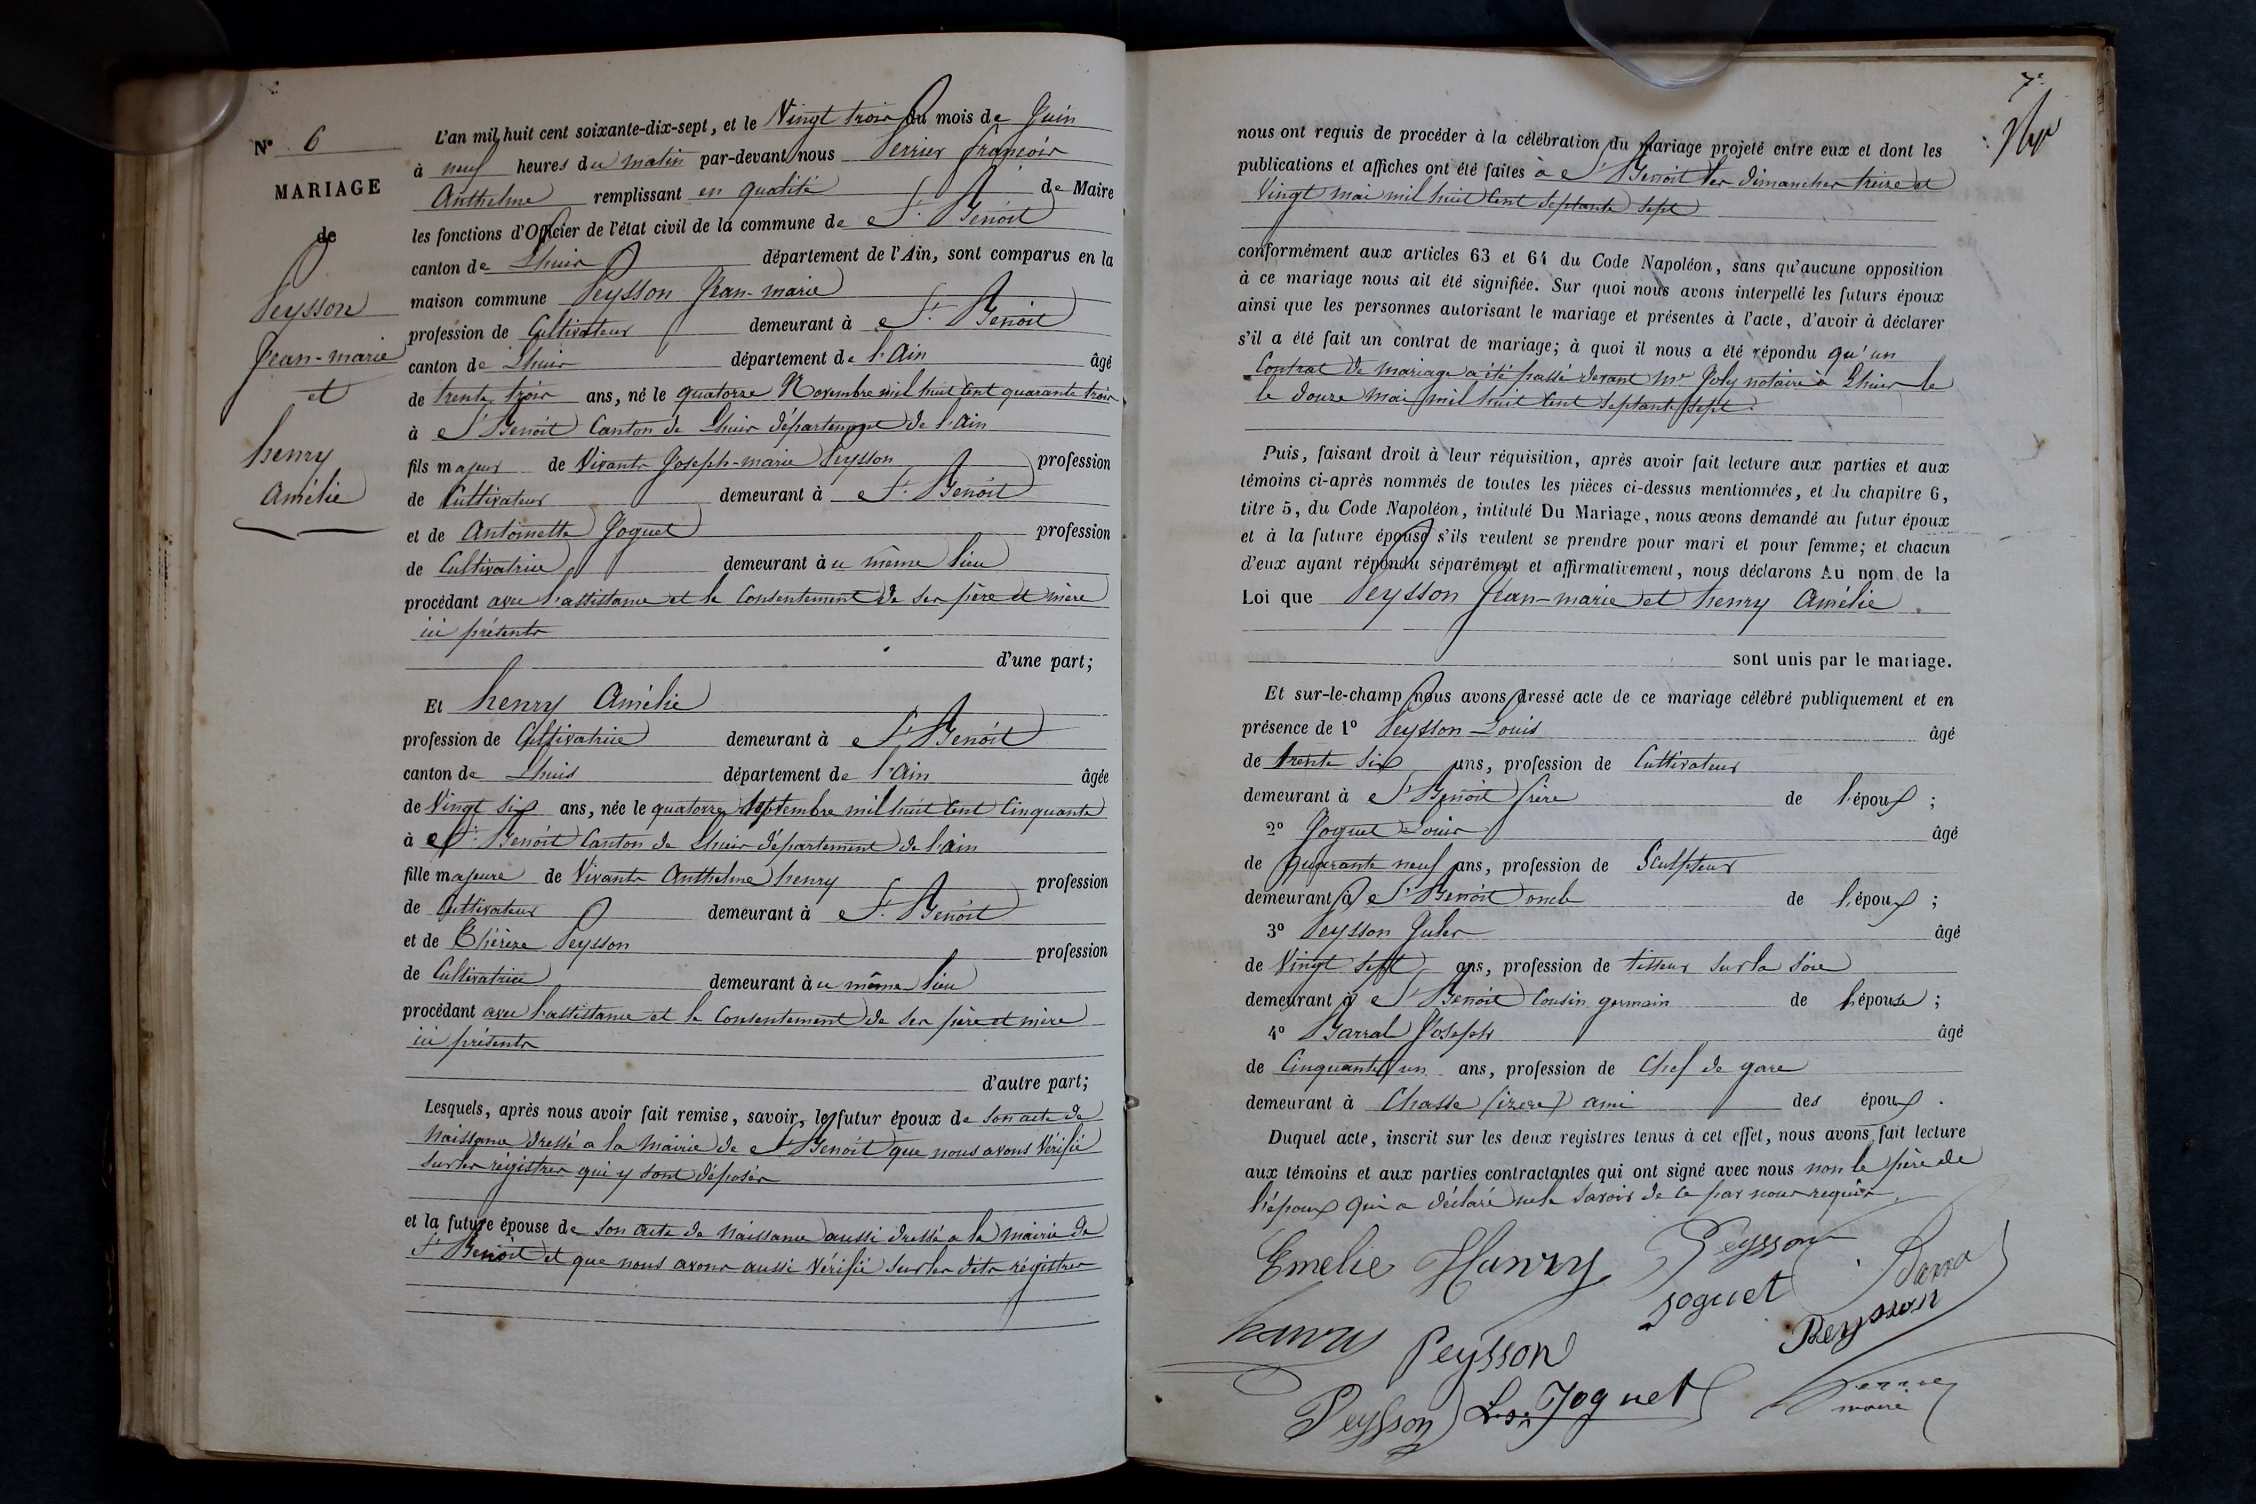 N° 6
MARIAGE
de
Peysson
Jean-marie
et
henry
Amélie
L'an mil huit cent soixante-dix-sept, et le Vingt trois du mois de Juin
à neuf heures du matin par-devant nous Perrier françois
Anthelme remplissant en qualité de Maire
les fonctions d'Officier de l'état civil de la commune de St. Benoit
canton de Lhuis département de l'Ain, sont comparus en la
maison commune Peysson Jean-marie
profession de Cultivateur demeurant à St. Benoit
canton de Lhuis département de l'Ain âgé
de trente trois ans, né le quatorze Novembre mil huit Cent quarante trois
à St Benoit Canton de Lhuis département de l'ain
fils majeur de Vivants Joseph-marie Peysson profession
de Cultivateur demeurant à St. Benoit
et de Antoinette Joguet profession
de Cultivatrice demeurant au même lieu
procédant avec l'assistance et le Consentement de ses père et mère
ici présents
d'une part;
Et henry Amélie
profession de Cultivatrice demeurant à St Benoit
canton de Lhuis département de l'Ain âgée
de Vingt six ans, née le quatorze Septembre mil huit Cent Cinquante
à St. Benoit Canton de Lhuis département de l'ain
fille majeure de Vivants Anthelme henry profession
de Cultivateur demeurant à St. Benoit
et de Thérèze Peysson profession
de Cultivatrice demeurant au même lieu
procédant avec l'assistance et le Consentement de ses père et mère
ici présents
d'autre part;
Lesquels, après nous avoir fait remise, savoir, le futur époux de son acte de
Naissance dressé a la Mairie de St Benoit que nous avons Vérifié
sur les régistres qui y sont déposés
et la future épouse de son acte de Naissance aussi dressé a la mairie de
St Benoit et que nous avons aussi Vérifié sur les dits régistres
7e
nous ont requis de procéder à la célébration du mariage projeté entre eux et dont les
publications et affiches ont été faites à St Benoit les dimanches treize et
Vingt mai mil huit Cent Septante Sept
conformément aux articles 63 et 64 du Code Napoléon, sans qu'aucune opposition
à ce mariage nous ait été signifiée. Sur quoi nous avons interpellé les futurs époux
ainsi que les personnes autorisant le mariage et présentes à l'acte, d'avoir à déclarer
s'il a été fait un contrat de mariage; à quoi il nous a été répondu qu'un
Contrat de mariage a été passé devant Mr Joly notaire à Lhuis le
le douze mai mil huit Cent Septante Sept.
Puis, faisant droit à leur réquisition, après avoir fait lecture aux parties et aux
témoins ci-après nommés de toutes les pièces ci-dessus mentionnées, et du chapitre 6,
titre 5, du Code Napoléon, intitulé Du Mariage, nous avons demandé au futur époux
et à la future épouse s'ils veulent se prendre pour mari et pour femme; et chacun
d'eux ayant répondu séparément et affirmativement, nous déclarons Au nom de la
Loi que Peysson Jean-marie et henry Amélie
sont unis par le mariage.
Et sur-le-champ nous avons dressé acte de ce mariage célébré publiquement et en
présence de 1° Peysson Louis âgé
de trente Six ans, profession de Cultivateur
demeurant à St Benoit frère de l'époux ;
2° Joguet Louis âgé
de quarante neuf ans, profession de Sculpteur
demeurant à St Benoit oncle de l'époux ;
3° Peysson Jules âgé
de Vingt Sept ans, profession de tisseur sur la Soie
demeurant à St Benoit Cousin germain de l'épouse ;
4° Barral Joseph âgé
de Cinquante un ans, profession de Chef de gare
demeurant à Chasse (izere) ami des époux .
Duquel acte, inscrit sur les deux registres tenus à cet effet, nous avons fait lecture
aux témoins et aux parties contractantes qui ont signé avec nous non le père de
l'époux qui a déclaré ne le savoir de ce par nous requis.
Emelie Hanry Peysson
Joguet Barra
hanry Peysson Peysson
Peysson Ls Joguet Perrier
maire